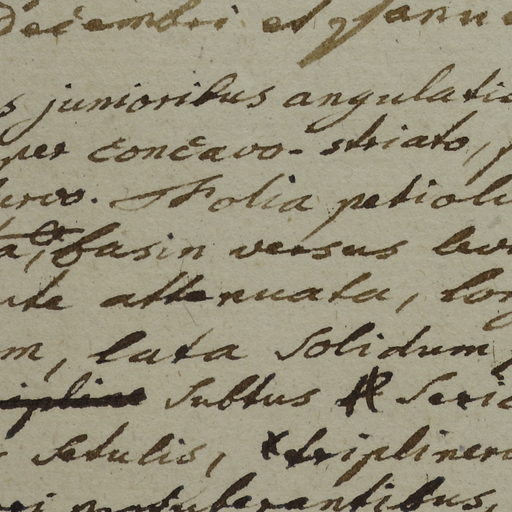 Decembri et Janu
s junioribus angulati
per concavo-striato,
Folia petiol
a, basin versus
te attenuata, lon
m, lata solidum
subtus seri
setulis, tripliner
protuberantibus,